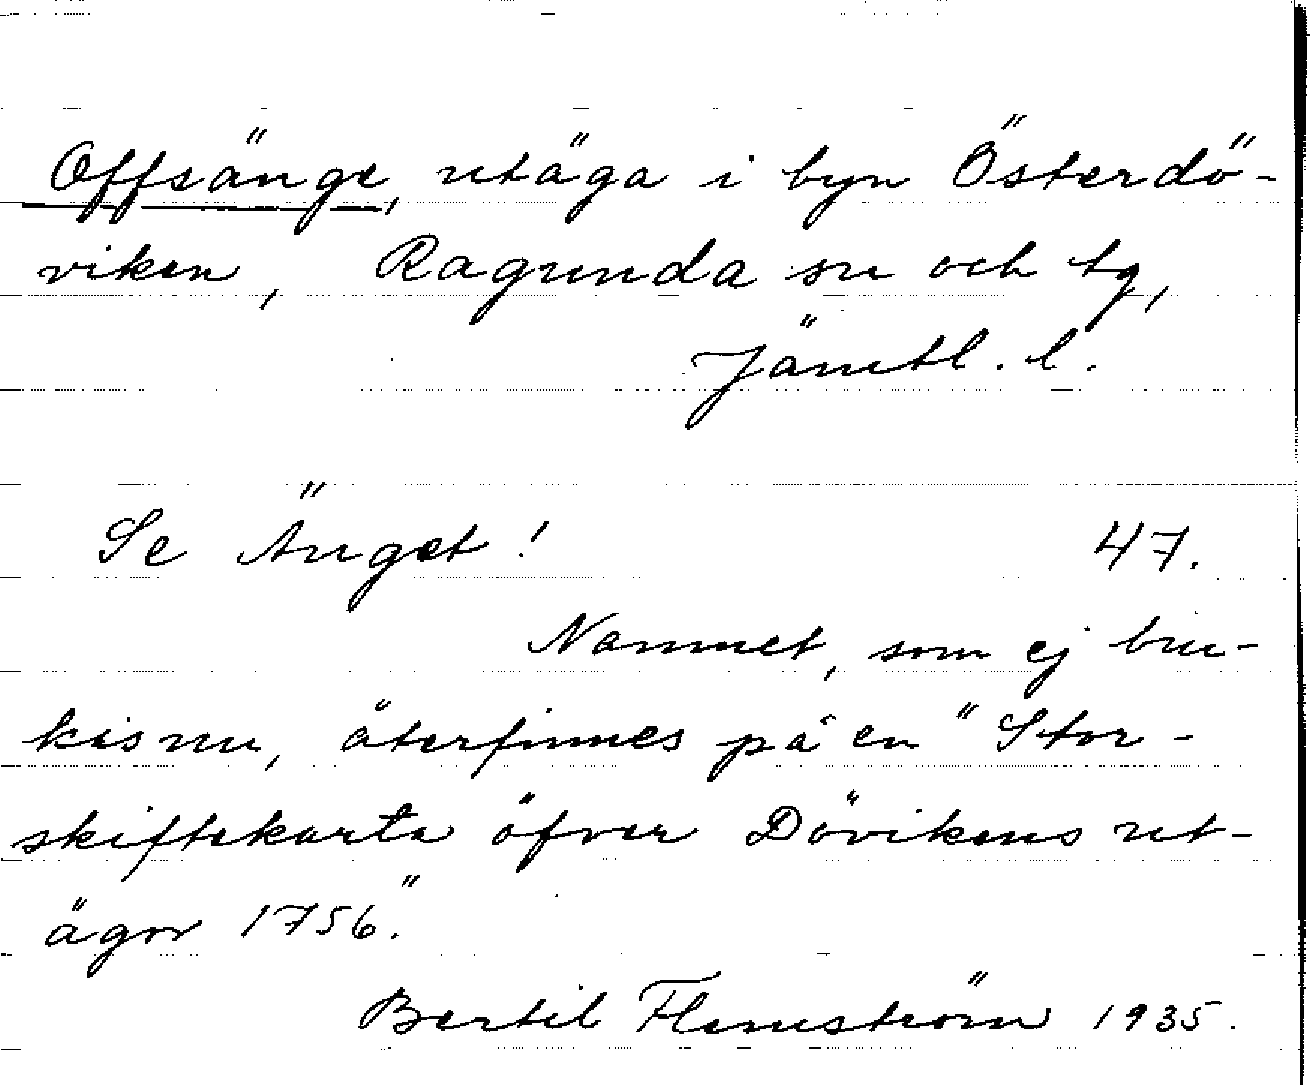 Offsänge, utäga i byn Österdö-
viken, Ragunda sn och tg,
Jämtl. l.
Se Änget! 47.
Namnet, som ej bru-
kas nu, återfinnes på en "Stor-
skiftekarta öfver Dövikens ut-
ägor 1756."
Bertil Flemström 1935.